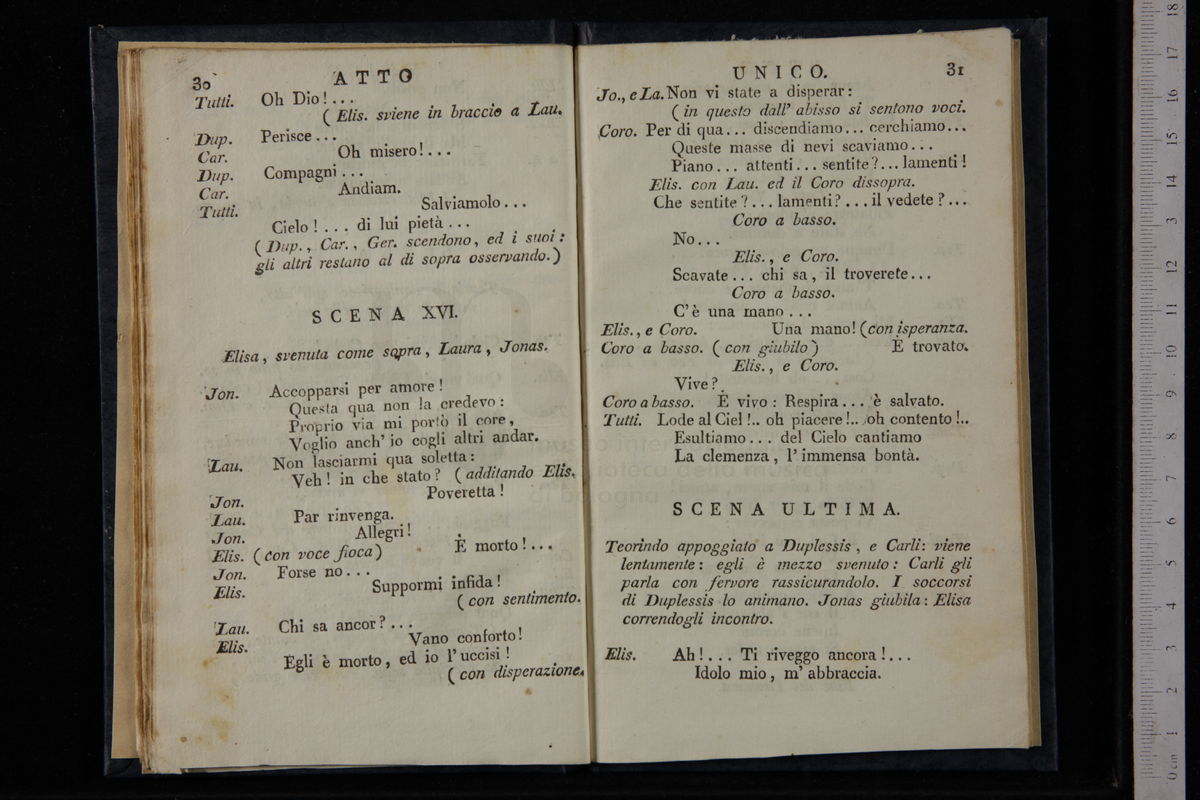 30
ATTO
Tutti. Oh Dio!...
( Elis. sviene in braccio a Lau.
Dup. Perisce...
Car. Oh misero!...
Dup. Compagni...
Car. Andiam.
Tutti. Salviamolo...
Cielo!... di lui pietà...
( Dup., Car., Ger. scendono, ed i suoi:
gli altri restano al di sopra osservando.)
SCENA XVI.
Elisa, svenuta come sopra, Laura, Jonas.
Jon. Accopparsi per amore!
Questa qua non la credevo:
Proprio via mi portò il core,
Voglio anch' io cogli altri andar.
Lau. Non lasciarmi qua soletta:
Veh! in che stato? ( additando Elis.
Jon. Poveretta!
Lau. Par rinvenga.
Jon. Allegri!
Elis. ( con voce fioca) È morto!...
Jon. Forse no...
Elis. Suppormi infida!
( con sentimento.
Lau. Chi sa ancor?...
Elis. Vano conforto!
Egli è morto, ed io l' uccisi!
( con disperazione.
UNICO.
31
Jo., e La. Non vi state a disperar:
( in questo dall' abisso si sentono voci.
Coro. Per di qua... discendiamo... cerchiamo...
Queste masse di nevi scaviamo...
Piano... attenti... sentite?... lamenti!
Elis. con Lau. ed il Coro dissopra.
Che sentite?... lamenti?... il vedete?...
Coro a basso.
No...
Elis., e Coro.
Scavate... chi sa, il troverete...
Coro a basso.
C' è una mano...
Elis., e Coro. Una mano! (con isperanza.
Coro a basso. ( con giubilo ) È trovato.
Elis., e Coro.
Vive?
Coro a basso. È vivo: Respira... è salvato.
Tutti. Lode al Ciel!.. oh piacere!.. oh contento!..
Esultiamo... del Cielo cantiamo
La clemenza, l' immensa bontà.
SCENA ULTIMA.
Teorindo appoggiato a Duplessis, e Carli: viene
lentamente: egli è mezzo svenuto: Carli gli
parla con fervore rassicurandolo. I soccorsi
di Duplessis lo animano. Jonas giubila: Elisa
correndogli incontro.
Elis. Ah!... Ti riveggo ancora!...
Idolo mio, m' abbraccia.
museo inter
biblioteca della musica
di bologna
0 cm 1 2 3 4 5 6 7 8 9 10 11 12 13 14 15 16 17 18